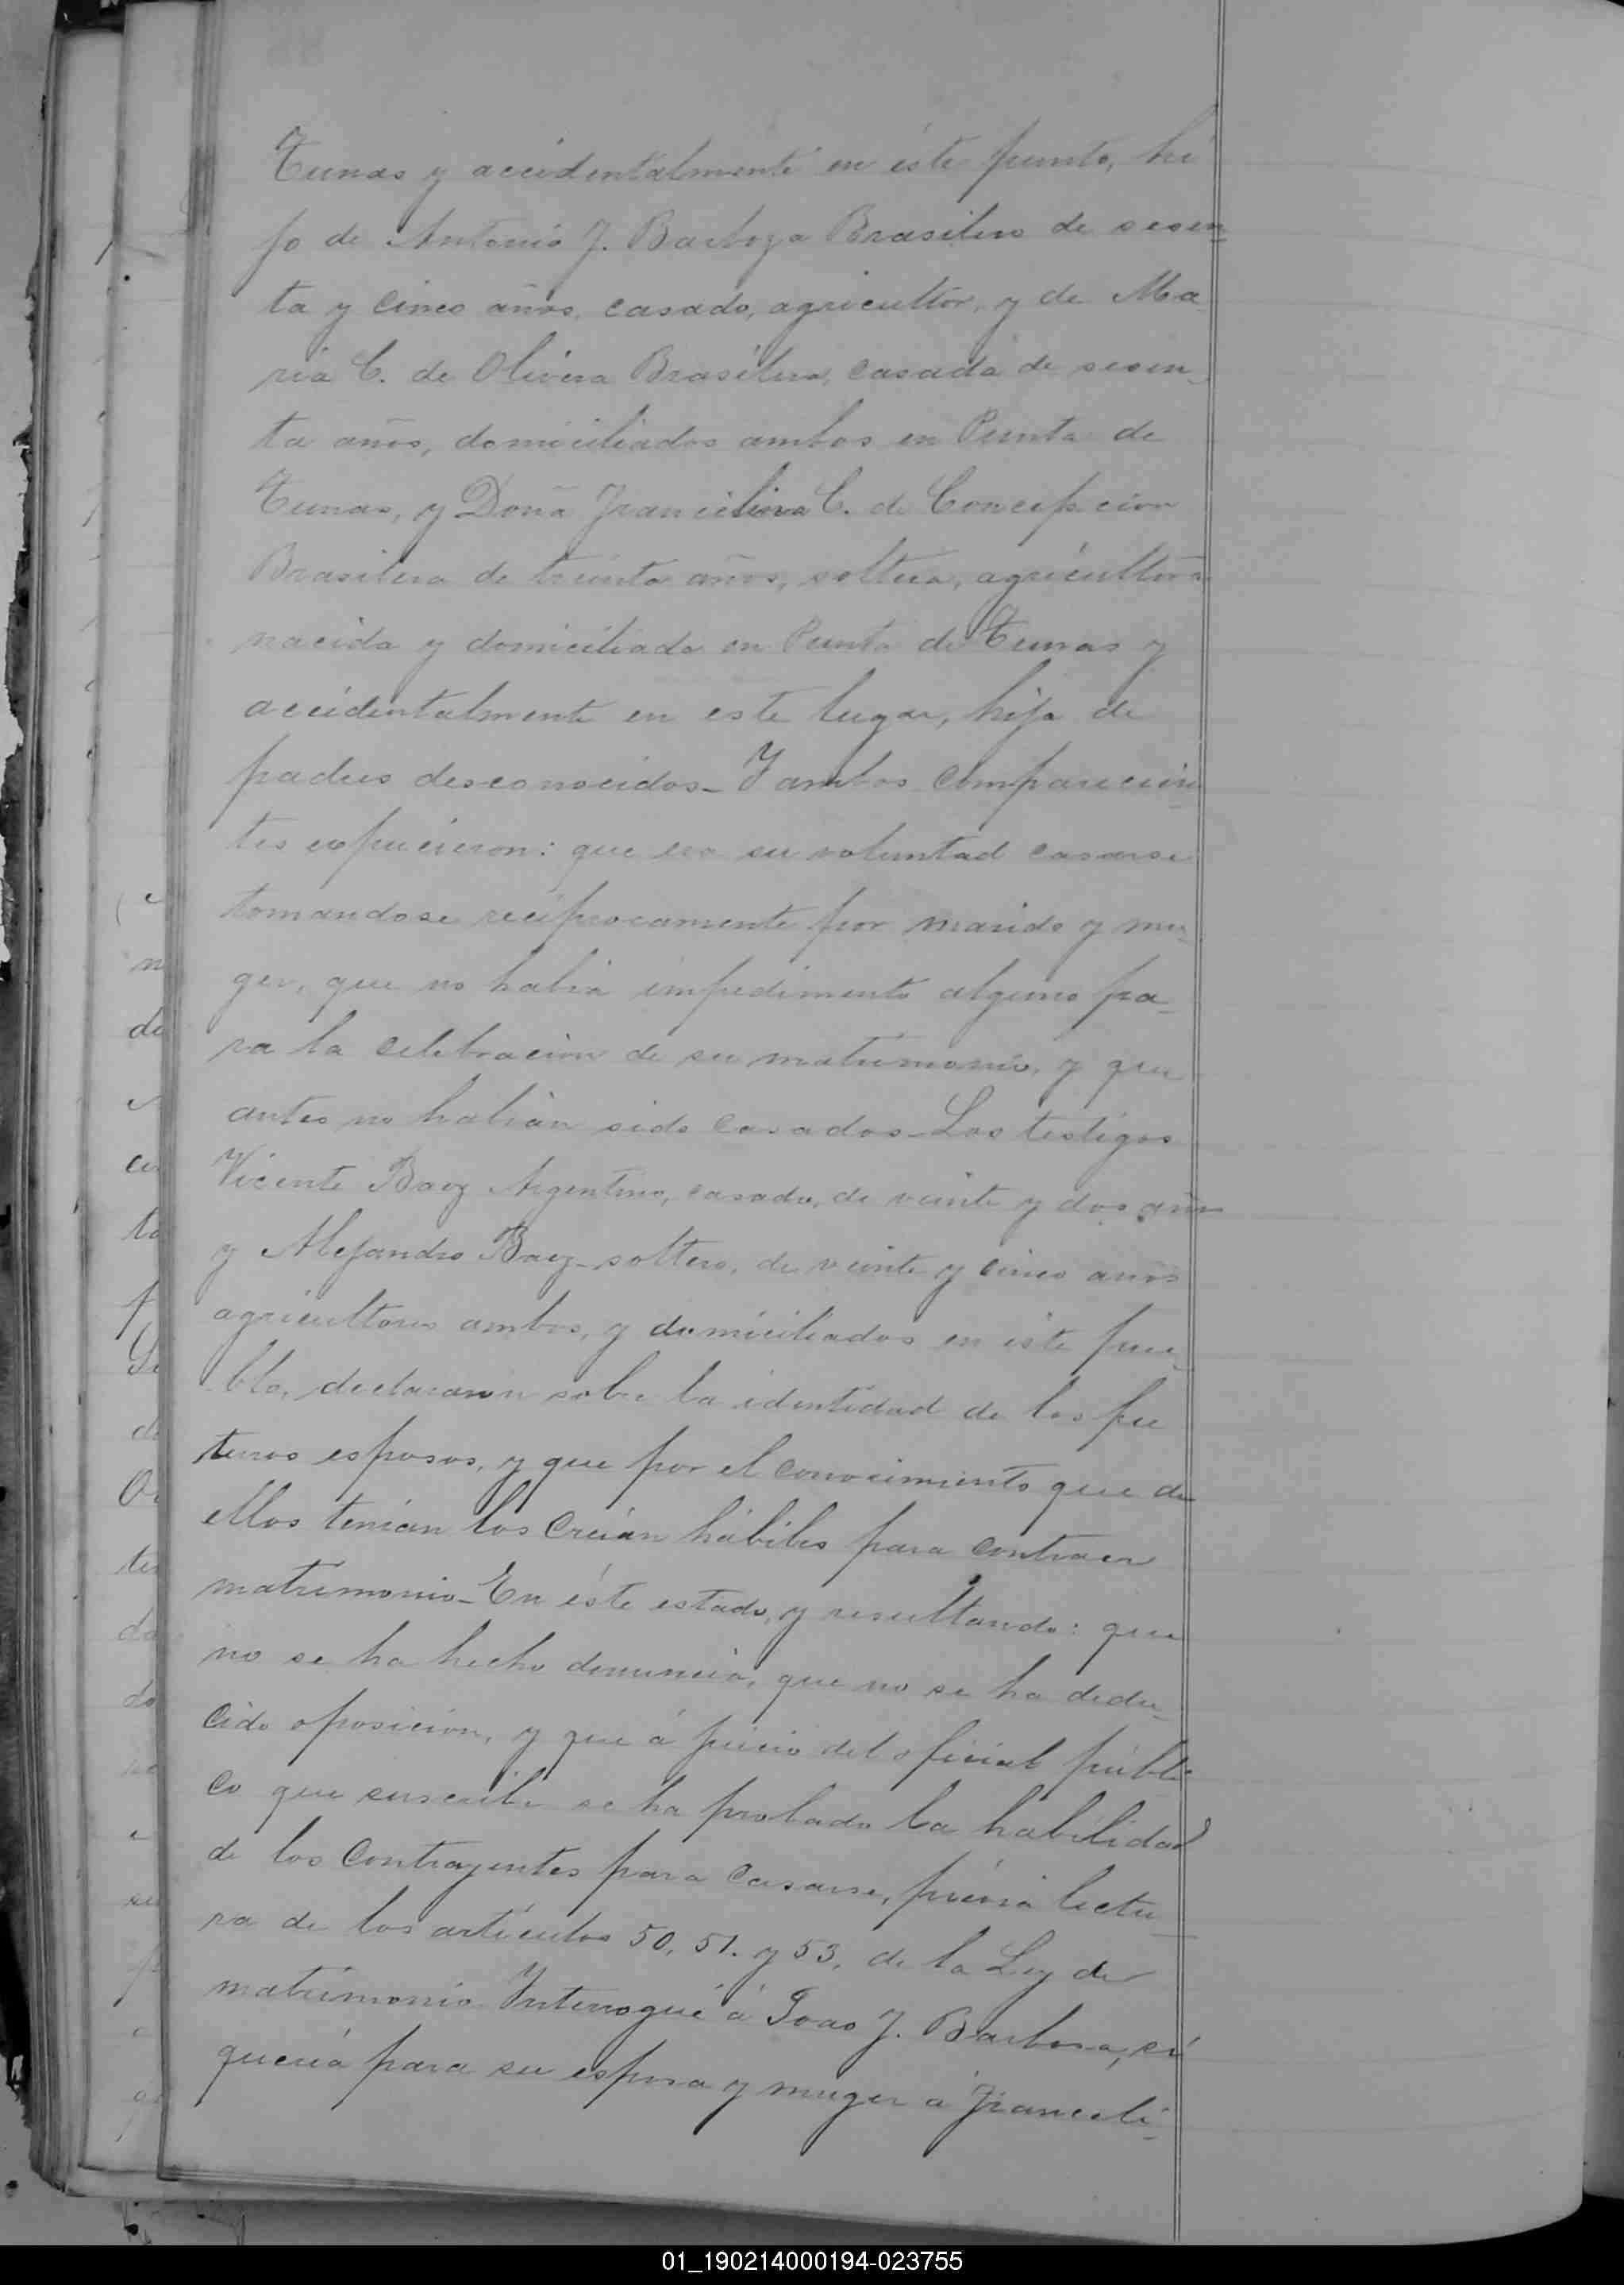 Tunas y accidentalmente en éste punto, hi
jo de Antonio J. Barboza Brasilero de sesen
ta y cinco años, casado, agricultor, y de Ma
ria C. de Olivera Brasilera, casada de sesen-
ta años, domiciliados ambos en Punta de
Tunas, y Doña Francelina C. de Concepcion
Brasilera de treinta años, soltera, agricultora
nacida y domiciliada en Punta de Tunas y
accidentalmente en este lugar, hija de
padres desconocidos_ Y ambos comparecien
tes expucieron: que era su voluntad casarse
tomandose reciprocamente por marido y mu-
ger, que no habia impedimento alguno pa-
ra la celebracion de su matrimonio, y que
antes no habian sido casados_ Los testigos
Vicente Baez Argentino, casado, de veinte y dos años
y Alejandro Baez_ soltero, de veinte y cinco años
agricultores ambos, y domiciliados en éste pue-
blo, declararon sobre la identidad de los fu
turos esposos, y que por el conocimiento que de
ellos tenian los creian hábiles para contraer
matrimonio_ En éste estado, y resultando: que
no se ha hecho denuncia, que no se ha dedu-
cido oposicion, y que á juicio del oficial públi
co que suscribe se ha probado la habilidad
de los contrayentes para casarse, prévia lectu
ra de los articulos 50, 51. y 53, de la Ley de
matrimonio Interrogué á Joao J. Barbosa, si
queria para su esposa y muger á Franceli-
01_190214000194-023755